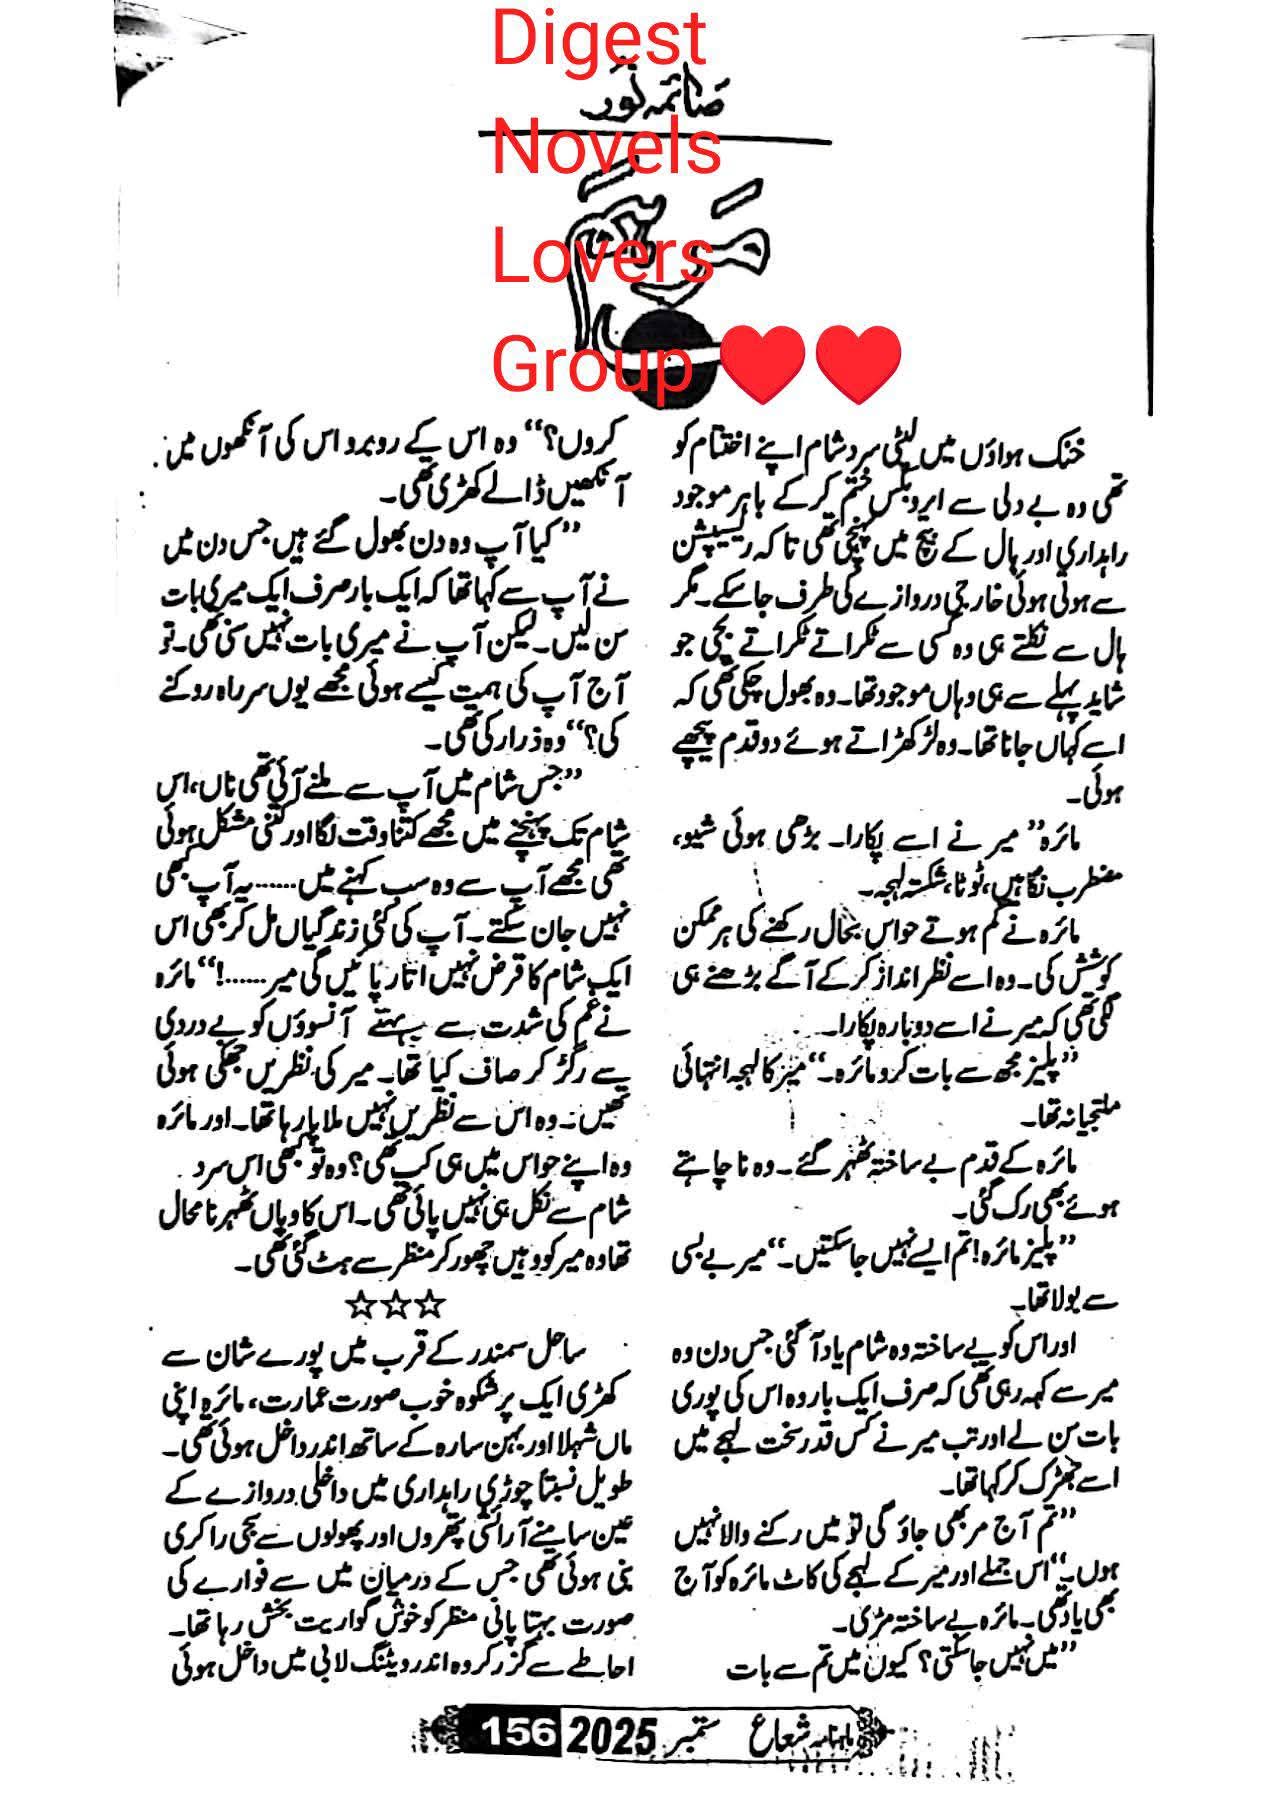 Digest
Novels
Lovers
Group ♥♥
صائمہ نور
خنک ہواؤں میں لپٹی سرد شام اپنے اختتام کو
تھی وہ بے دلی سے ایروبکس ختم کرکے باہر موجود
راہداری اور ہال کے بیچ میں پہنچی تھی تاکہ ریسیپشن
سے ہوتی ہوئی خارجی دروازے کی طرف جاسکے۔ مگر
ہال سے نکلتے ہی وہ کسی سے ٹکراتے ٹکراتے بچی جو
شاید پہلے سے ہی وہاں موجود تھا۔ وہ بھول چکی تھی کہ
اسے کہاں جانا تھا۔ وہ لڑکھڑاتے ہوئے دو قدم پیچھے
ہوئی۔
مائرہ” میر نے اسے پکارا۔ بڑھی ہوئی شیو،
مضطرب نگاہیں، ٹوٹا، شکستہ لہجہ۔
مائرہ نے گم ہوتے حواس بحال رکھنے کی ہر ممکن
کوشش کی۔ وہ اسے نظر انداز کرکے آگے بڑھنے ہی
لگی تھی کہ میر نے اسے دوبارہ پکارا۔
”پلیز مجھ سے بات کرو مائرہ۔“ میر کا لہجہ انتہائی
ملتجیانہ تھا۔
مائرہ کے قدم بے ساختہ ٹھہر گئے۔ وہ نا چاہتے
ہوئے بھی رک گئی۔
”پلیز مائرہ! تم ایسے نہیں جاسکتیں۔“ میر بے بسی
سے بولا تھا۔
اور اس کو بے ساختہ وہ شام یاد آ گئی جس دن وہ
میر سے کہہ رہی تھی کہ صرف ایک بار وہ اس کی پوری
بات سن لے اور تب میر نے کس قدر سخت لہجے میں
اسے جھڑک کر کہا تھا۔
”تم آج مر بھی جاؤ گی تو میں رکنے والا نہیں
ہوں۔“ اس جملے اور میر کے لہجے کی کاٹ مائرہ کو آج
بھی یاد تھی۔ مائرہ بے ساختہ مڑی۔
”میں نہیں جاسکتی؟ کیوں میں تم سے بات
کروں؟“ وہ اس کے روبرو اس کی آنکھوں میں
آنکھیں ڈالے کھڑی تھی۔
”کیا آپ وہ دن بھول گئے ہیں جس دن میں
نے آپ سے کہا تھا کہ ایک بار صرف ایک میری بات
سن لیں۔ لیکن آپ نے میری بات نہیں سنی تھی۔ تو
آج آپ کی ہمت کیسے ہوئی مجھے یوں سر راہ روکنے
کی؟“ وہ ذرا رکی تھی۔
”جس شام میں آپ سے ملنے آئی تھی ناں، اس
شام تک پہنچنے میں مجھے کتنا وقت لگا اور کتنی مشکل ہوئی
تھی مجھے آپ سے وہ سب کہنے میں...... یہ آپ بھی
نہیں جان سکتے۔ آپ کی کئی زندگیاں مل کر بھی اس
ایک شام کا قرض نہیں اتار پائیں گی میر......!“ مائرہ
نے غم کی شدت سے بہتے آنسوؤں کو بے دردی
سے رگڑ کر صاف کیا تھا۔ میر کی نظریں جھکی ہوئی
تھیں۔ وہ اس سے نظریں نہیں ملا پا رہا تھا۔ اور مائرہ
وہ اپنے حواس میں ہی کب تھی؟ وہ تو کبھی اس سرد
شام سے نکل ہی نہیں پائی تھی۔ اس کا وہاں ٹھہرنا محال
تھا وہ میر کو وہیں چھوڑ کر منظر سے ہٹ گئی تھی۔
☆☆☆
ساحل سمندر کے قرب میں پورے شان سے
کھڑی ایک پرشکوہ خوب صورت عمارت، مائرہ اپنی
ماں شہلا اور بہن سارہ کے ساتھ اندر داخل ہوئی تھی۔
طویل نسبتاً چوڑی راہداری میں داخلی دروازے کے
عین سامنے آرائشی پتھروں اور پھولوں سے سجی راکری
بنی ہوئی تھی جس کے درمیان میں سے فوارے کی
صورت بہتا پانی منظر کو خوش گواریت بخش رہا تھا۔
احاطے سے گزر کر وہ اندر ویٹنگ لابی میں داخل ہوئی
ماہنامہ شعاع ستمبر 2025 156